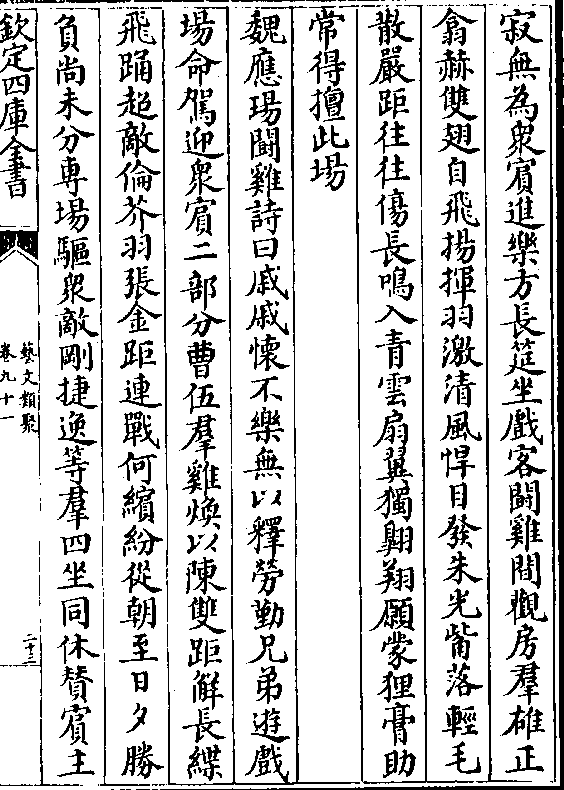 寂無為衆賔進樂方長筵坐戲客闘雞閒觀房羣雄正
翕赫雙翅自飛揚揮羽激清風悍目發朱光觜落輕毛
散嚴距往往傷長鳴入青雲扇翼獨翺翔願蒙狸膏助
常得擅此塲
魏應瑒闘雞詩曰戚戚懐不樂無以釋勞勤兄弟遊戲
塲命駕迎衆賔二部分曹伍羣雞煥以陳雙距解長緤
飛踊超敵倫芥羽張金距連戰何繽紛從朝至日夕勝
負尚未分専塲驅衆敵剛捷逸等羣四坐同休賛賔主
欽定四庫全書
藝文類聚
卷九十一
二十三